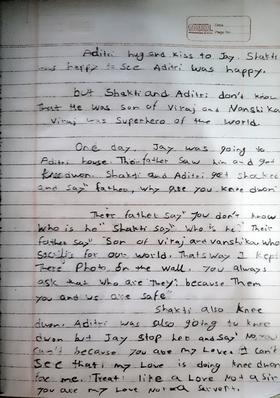 Date
Page No.
Aditri hug and kiss to Jay. Shakti
was happy to see Aditri was happy.
but Shakti and Aditri don't know
that He was son of Viraj and Vanshika
Viraj was Superhero of the world.
One day, Jay was going to
Aditri house. Their father saw him and got
knee down. Shakti and Aditri get shocked
and say "father, why are you knee down"
Their father say "you don't know
who is he" Shakti say "who is he" Their
father say "Son of Viraj and vanshika who
for our world. Thats way I kept
There Photo on the wall. You always
ask that who are they? because Them
you and us are safe"
Shakti also knee
down. Aditri was also going to knee
down but Jay stop her and say No you
can't because you are my Love. I can't
see that my Love is doing knee down
for me. Treat like a Love Not a Sir
you are my Love Not a servent.